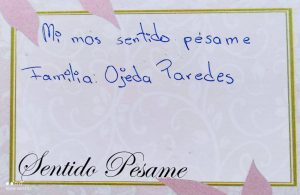 Mi mas sentido pésame
Familia: Ojeda Paredes
Sentido Pésame